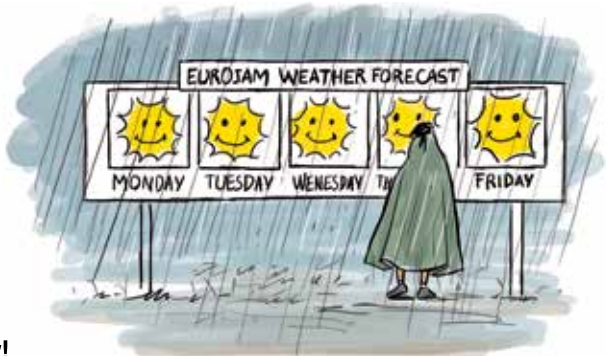 EUROJAM WEATHER FORECAST
MONDAY TUESDAY WENESDAY FRIDAY